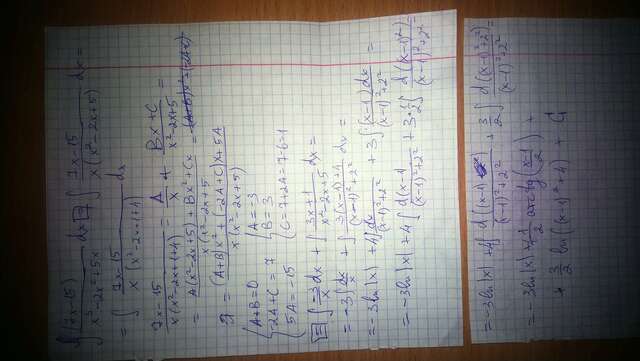 ∫ (7x-15)/(x³-2x²+5x) dx = ∫ (7x-15)/(x(x²-2x+5)) dx =
= ∫ (7x-15)/(x(x²-2x+1+4)) dx
(7x-15)/(x(x²-2x+1+4)) = A/x + (Bx+C)/(x²-2x+5) =
= (A(x²-2x+5)+Bx²+Cx)/(x(x²-2x+5)) =
= ((A+B)x²+(-2A+C)x+5A)/(x(x²-2x+5))
{A+B=0
-2A+C=7
5A=-15
{A=-3
B=3
C=7+2A=7-6=1
= ∫ -3/x dx + ∫ (3x+1)/(x²-2x+5) dx =
= -3∫ dx/x + ∫ (3(x-1)+4)/((x-1)²+2²) dx =
= -3ln|x| + 4∫ dx/((x-1)²+2²) + 3∫ (x-1)dx/((x-1)²+2²) =
= -3ln|x| + 4∫ d(x-1)/((x-1)²+2²) + 3·1/2 ∫ d((x-1)²)/((x-1)²+2²) =
= -3ln|x| + 4∫ d(x-1)/((x-1)²+2²) + 3/2 ∫ d((x-1)²+2²)/((x-1)²+2²) =
= -3ln|x| + arctg((x-1)/2) +
+ 3/2 ln((x-1)²+4) + C